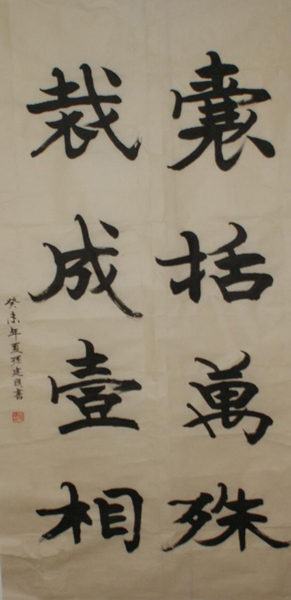 囊括萬殊
裁成壹相
癸未年夏理建民書